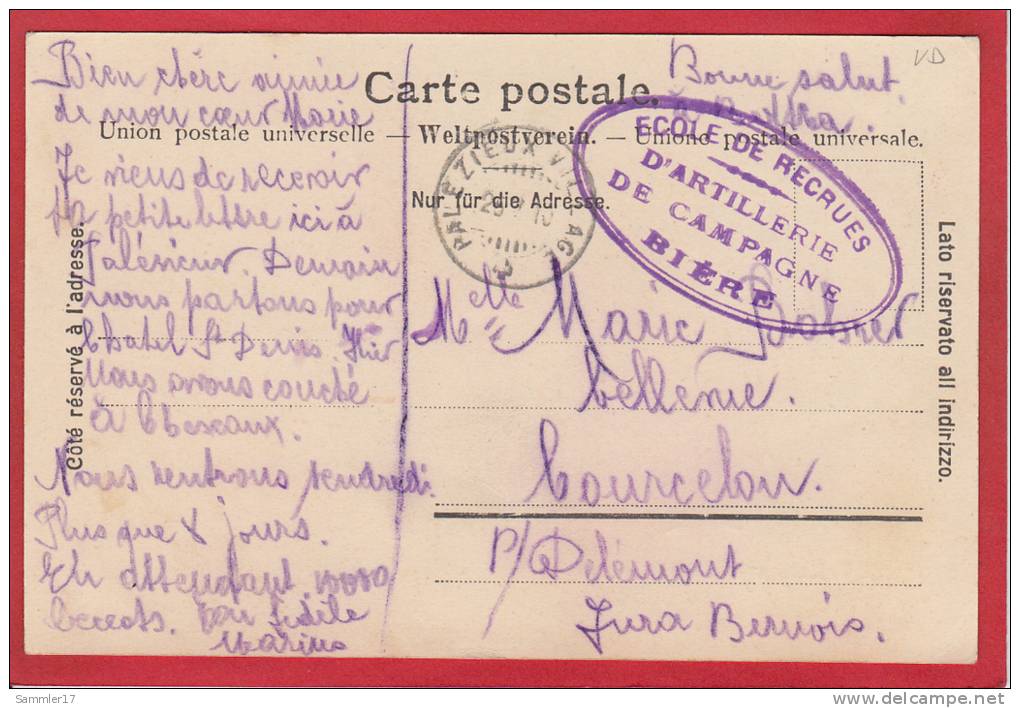 Bonne salut
VD
Carte postale.
Union postale universelle — Weltpostverein. — Unione postale universale.
Nur für die Adresse.
Côté réservé à l'adresse.
Lato riservato all indirizzo.
PALEZIEUX VILLAGE
ECOLE DE RECRUES
D'ARTILLERIE
DE CAMPAGNE
BIÈRE
Bien chère aimée
de mon cœur Marie
Je viens de recevoir
ta petite lettre ici à
Palézieux. Demain
nous partons pour
Chatel St Denis. Hier
Nous avons couché
à
Nous rentrons vendredi.
Plus que 8 jours.
En attendant 1000
ton fidèle
Marius
Melle Marie
Bellerive.
Courcelon.
p/ Delémont
Jura Bernois.
Sammler17
www.delcampe.net